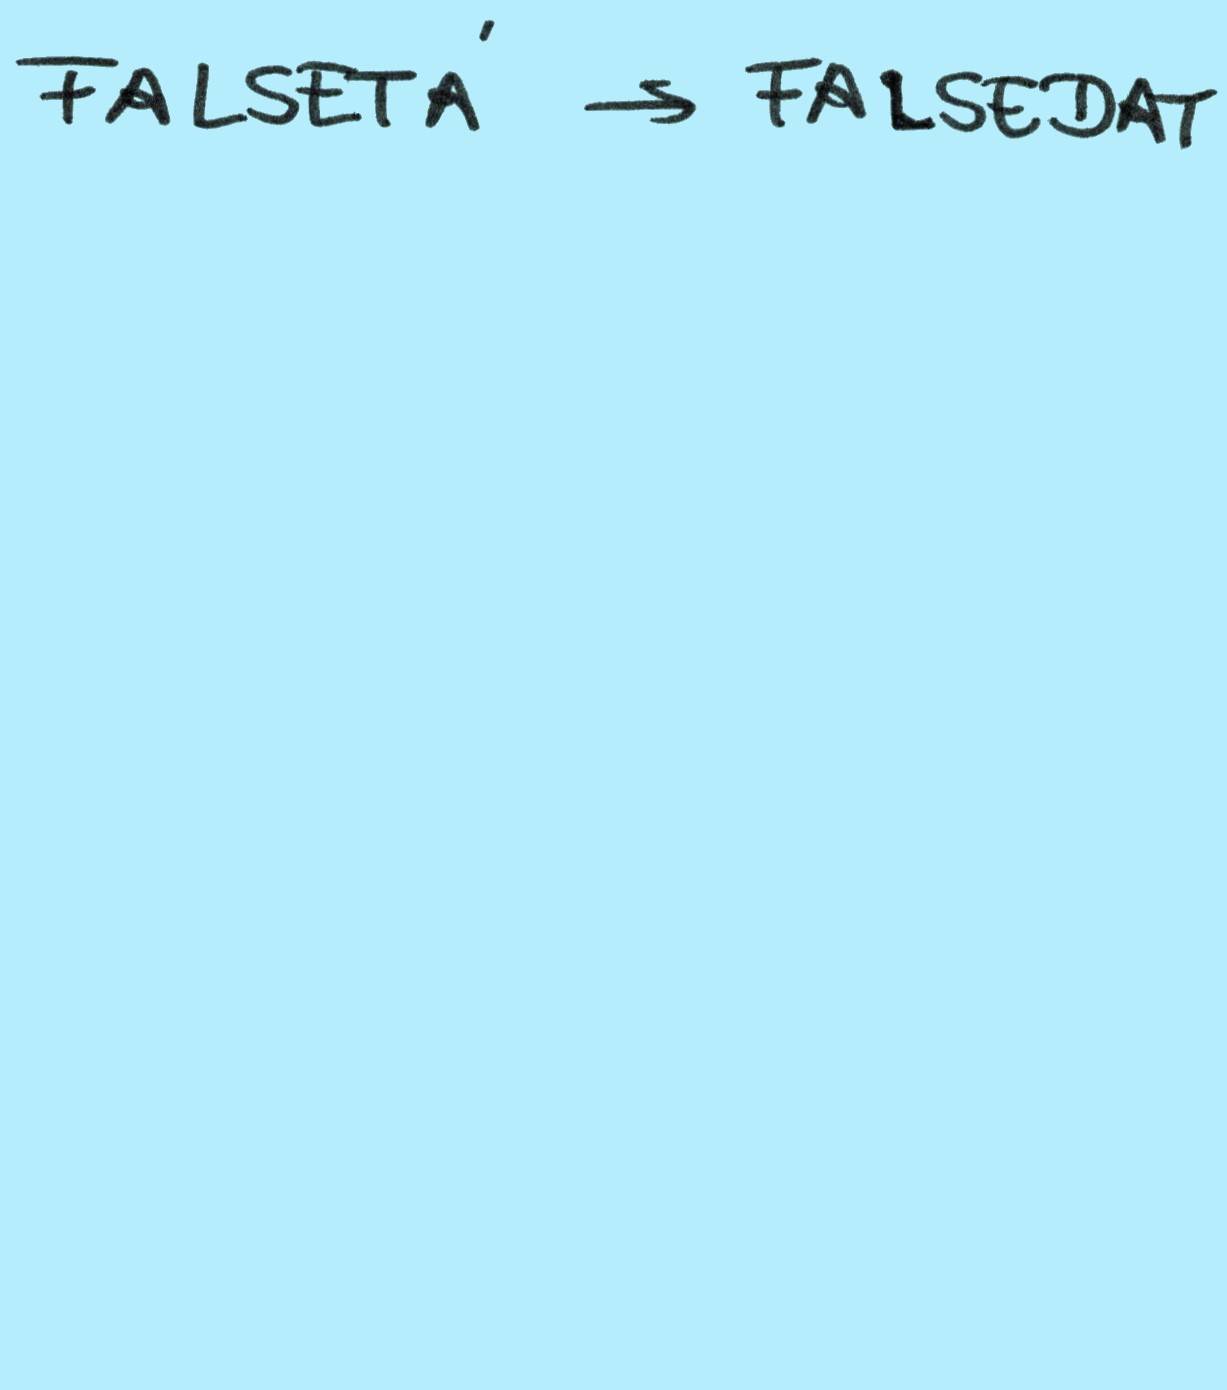 FALSETA' → FALSEDAT